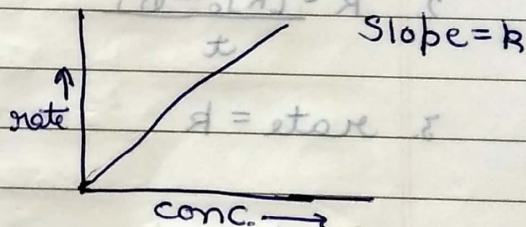 Slope = k
↑
rate
conc. →